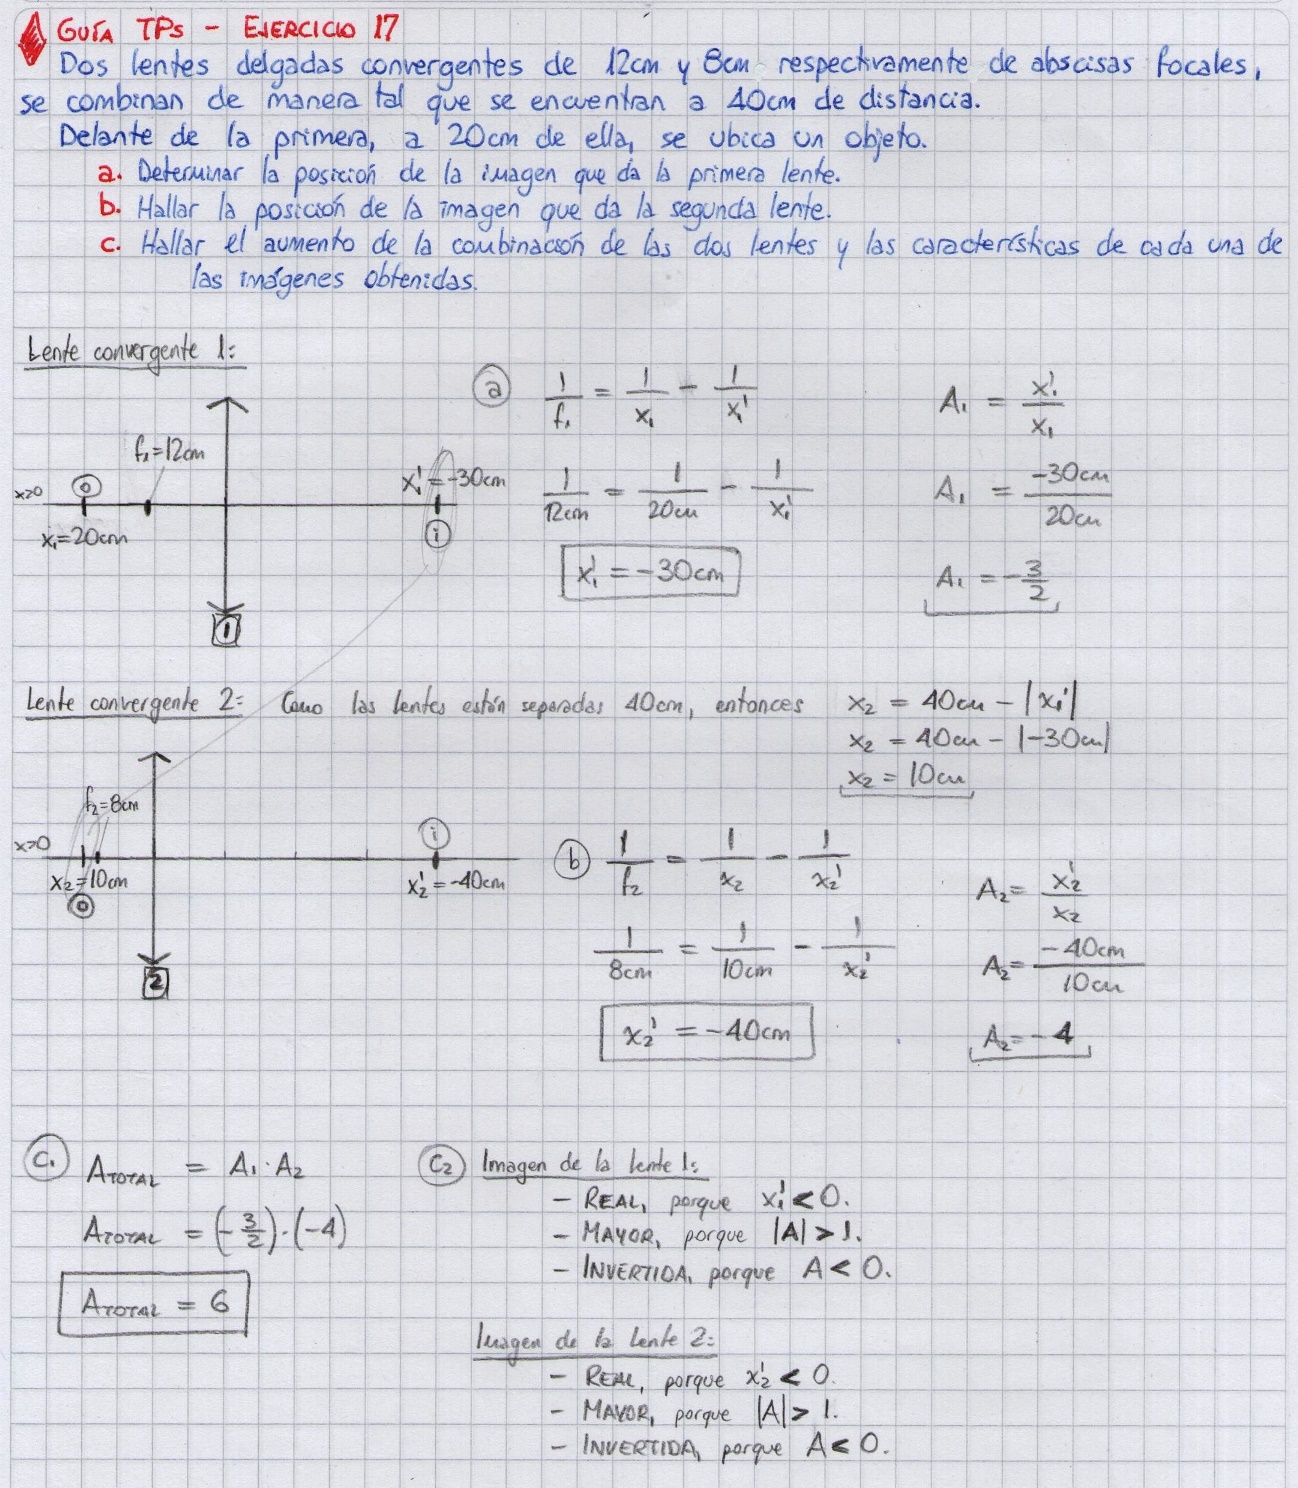 GUÍA TPs - EJERCICIO 17
Dos lentes delgadas convergentes de 12cm y 8cm respectivamente de abscisas focales,
se combinan de manera tal que se encuentran a 40cm de distancia.
Delante de la primera, a 20cm de ella, se ubica un objeto.
a. Determinar la posición de la imagen que da la primera lente.
b. Hallar la posición de la imagen que da la segunda lente.
c. Hallar el aumento de la combinación de las dos lentes y las características de cada una de
las imágenes obtenidas.
Lente convergente 1:
f₁=12cm
x>0
o
x₁=20cm
x₁' = -30cm
i
1
a
1/f₁ = 1/x₁ - 1/x₁'
1/12cm = 1/20cm - 1/x₁'
x₁' = -30cm
A₁ = x₁'/x₁
A₁ = -30cm/20cm
A₁ = -3/2
Lente convergente 2: Como las lentes están separadas 40cm, entonces
x₂ = 40cm - |x₁'|
x₂ = 40cm - |-30cm|
x₂ = 10cm
f₂=8cm
x>0
x₂=10cm
o
i
x₂' = -40cm
2
b
1/f₂ = 1/x₂ - 1/x₂'
1/8cm = 1/10cm - 1/x₂'
x₂' = -40cm
A₂ = x₂'/x₂
A₂ = -40cm/10cm
A₂ = -4
C₁
A_TOTAL = A₁ · A₂
A_TOTAL = (-3/2) · (-4)
A_TOTAL = 6
C₂ Imagen de la lente 1:
- REAL, porque x₁' < 0.
- MAYOR, porque |A| > 1.
- INVERTIDA, porque A < 0.
Imagen de la lente 2:
- REAL, porque x₂' < 0.
- MAYOR, porque |A| > 1.
- INVERTIDA, porque A < 0.